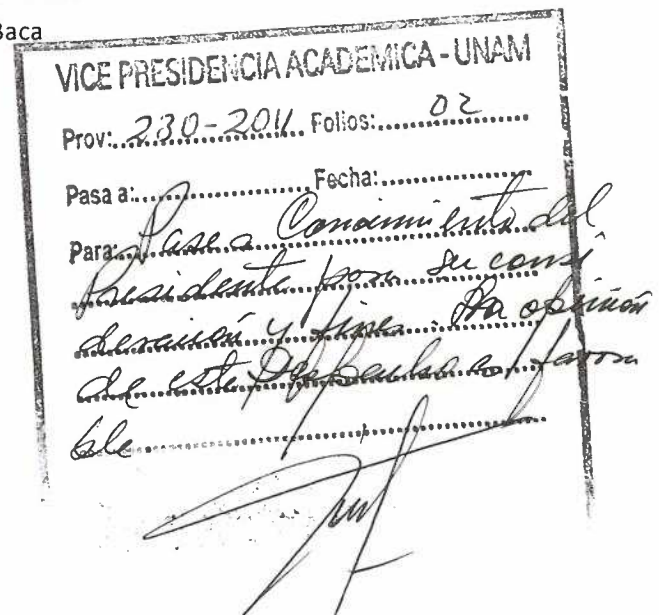 Baca
VICE PRESIDENCIA ACADEMICA - UNAM
Prov: 230-2011 Folios: 02
Pasa a: Fecha:
Para: Pase a Conocimiento del
Presidente para su consi
deración y fines. La opinión
de este es favora
ble